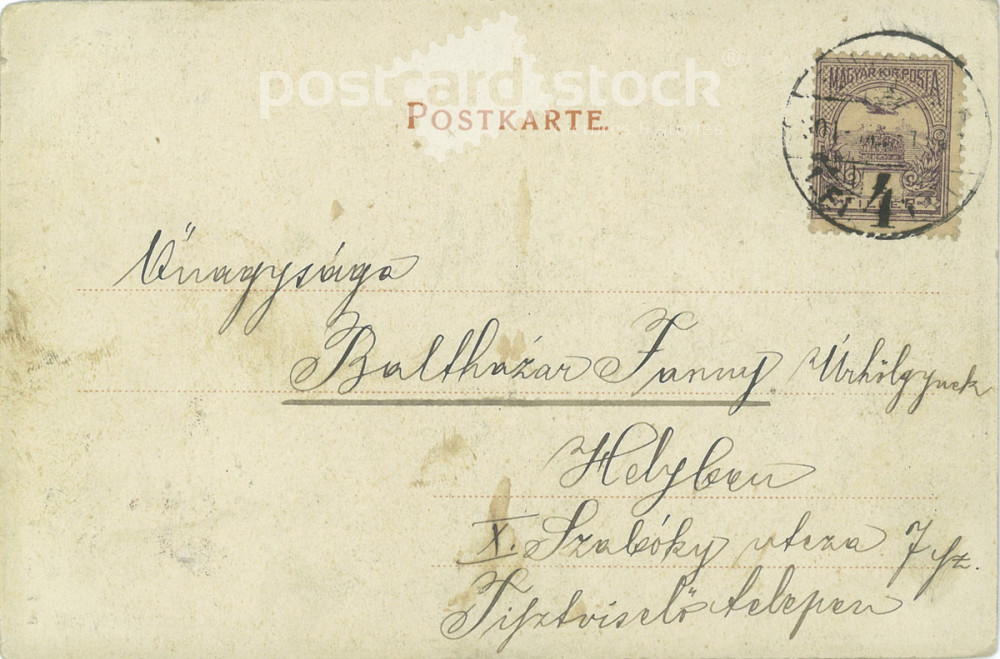 postcard stock®
POSTKARTE.
MAGYAR KIR. POSTA
FILLÉR
4
Őnagysága
Balthazár Fanny Úrhölgynek
Helyben
X. Szabóky utcza 7 sz.
Tisztviselő telepen